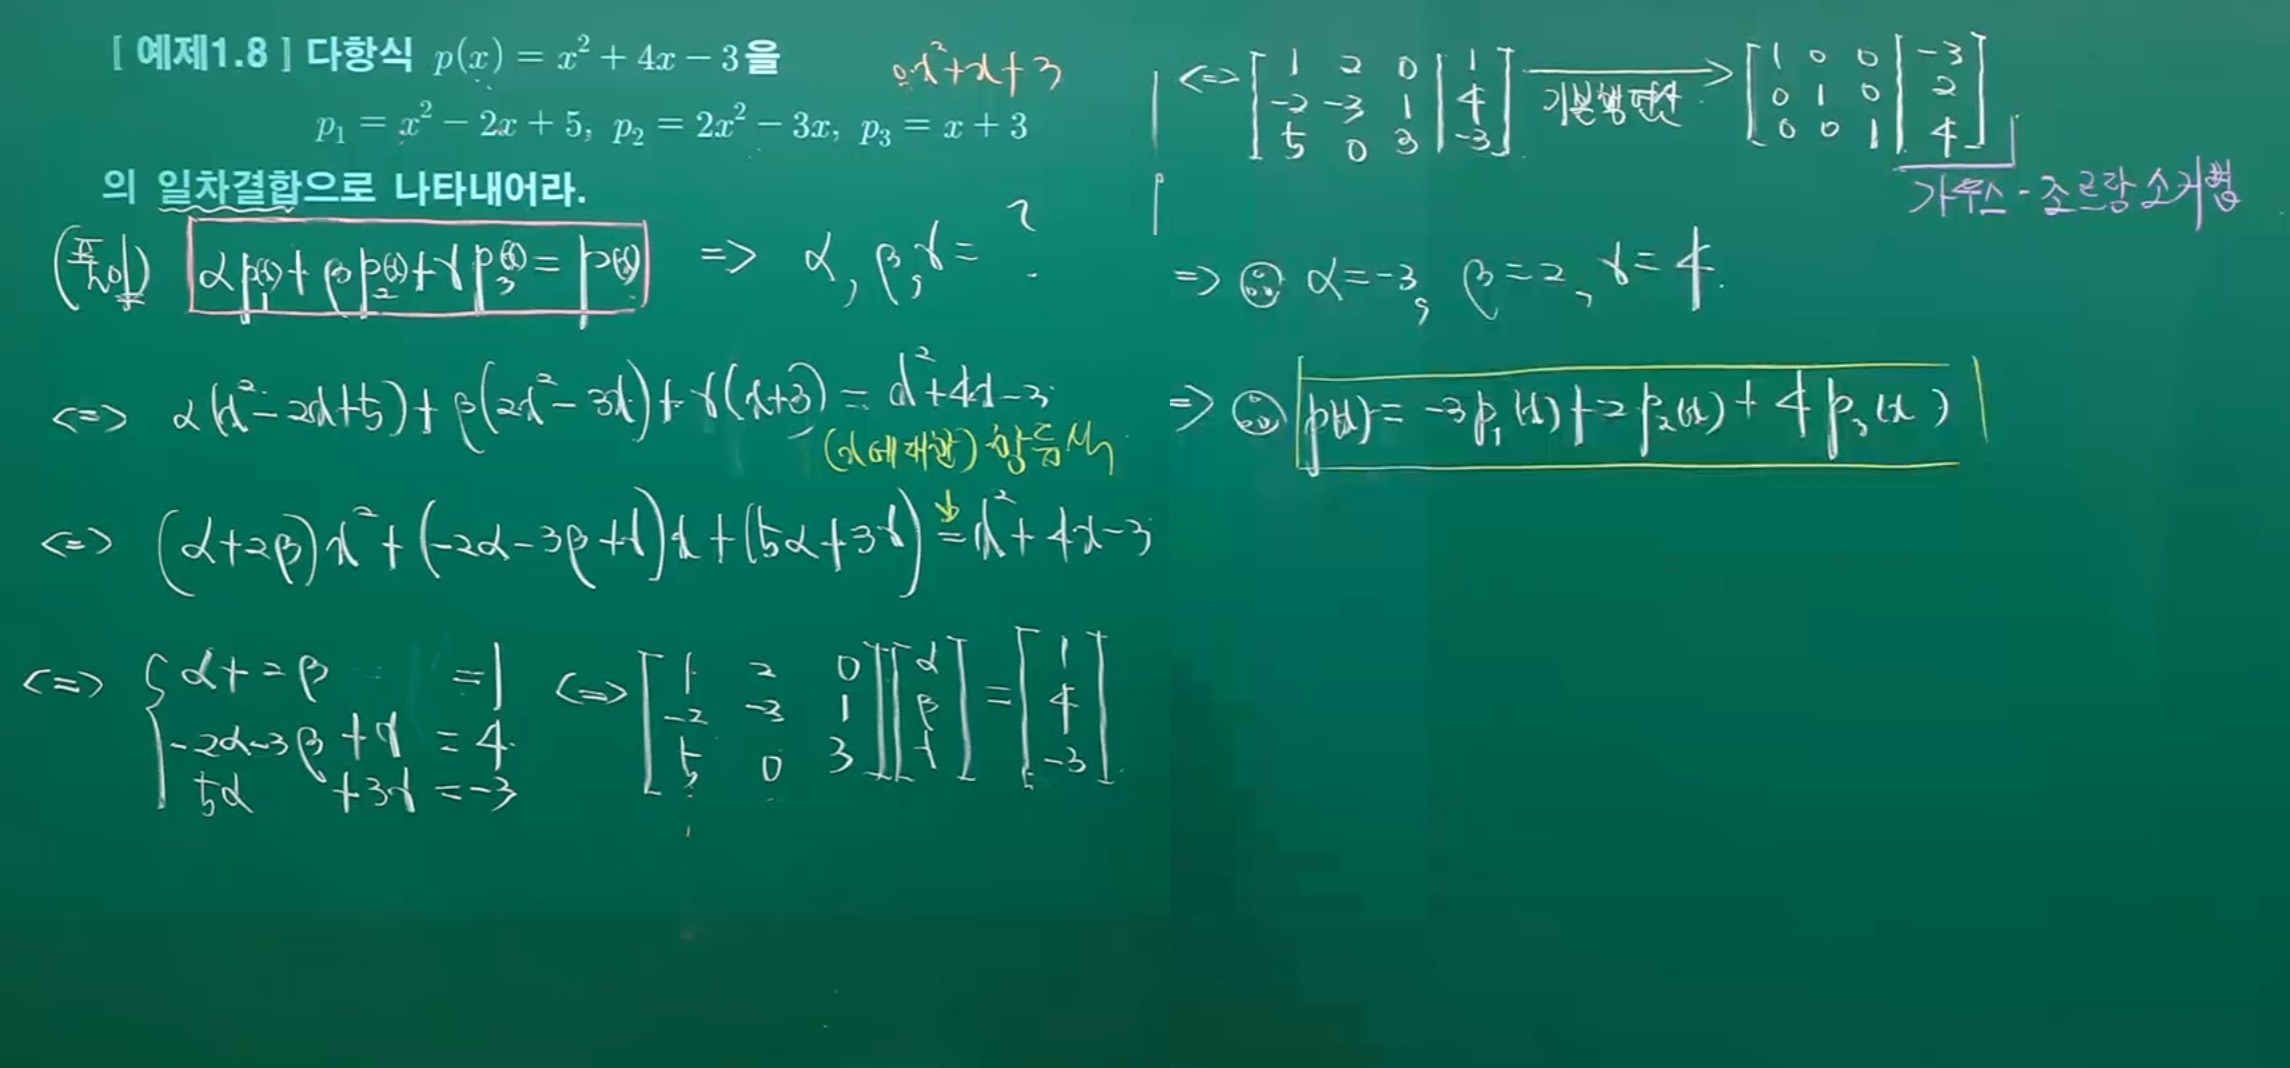 [ 예제1.8 ] 다항식 p(x) = x² + 4x − 3을
0·x²+x+3
p₁ = x² − 2x + 5, p₂ = 2x² − 3x, p₃ = x + 3
의 일차결합으로 나타내어라.
(풀이) αp₁(x)+βp₂(x)+γp₃(x)=p(x) => α, β, γ = ?
<=> α(x²−2x+5)+β(2x²−3x)+γ(x+3) = x²+4x−3
(x에 대한) 항등식
<=> (α+2β)x²+(−2α−3β+γ)x+(5α+3γ) = x²+4x−3
<=> { α+2β = 1
−2α−3β+γ = 4
5α +3γ = −3
<=> [ 1 2 0
−2 −3 1
5 0 3 ] [ α
β
γ ] = [ 1
4
−3 ]
<=> [ 1 2 0 | 1
−2 −3 1 | 4
5 0 3 | −3 ]
기본행연산
[ 1 0 0 | −3
0 1 0 | 2
0 0 1 | 4 ]
가우스-조르당 소거법
=> ∴ α=−3, β=2, γ=4.
=> ∴ p(x) = −3p₁(x)+2p₂(x)+4p₃(x)